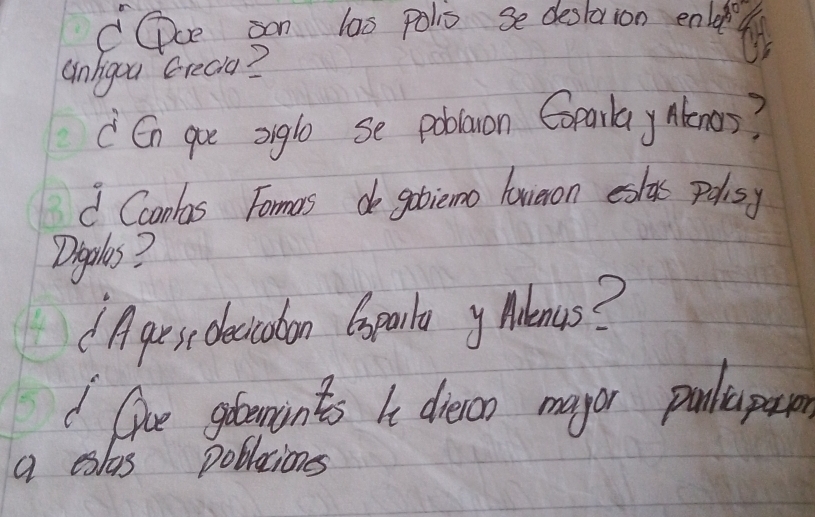 1 ¿Que son las polis se destaron enla
antigua Grecia?
2 ¿En que siglo se poblaron Esparta y Atenas?
3 ¿Cuantas Formas de gobierno tuvieron estas polis y
Digalas?
4 ¿A que se decicaban Esparta y Atenas?
5 ¿Que gobernantes le dieron mayor participacion
a estas poblaciones